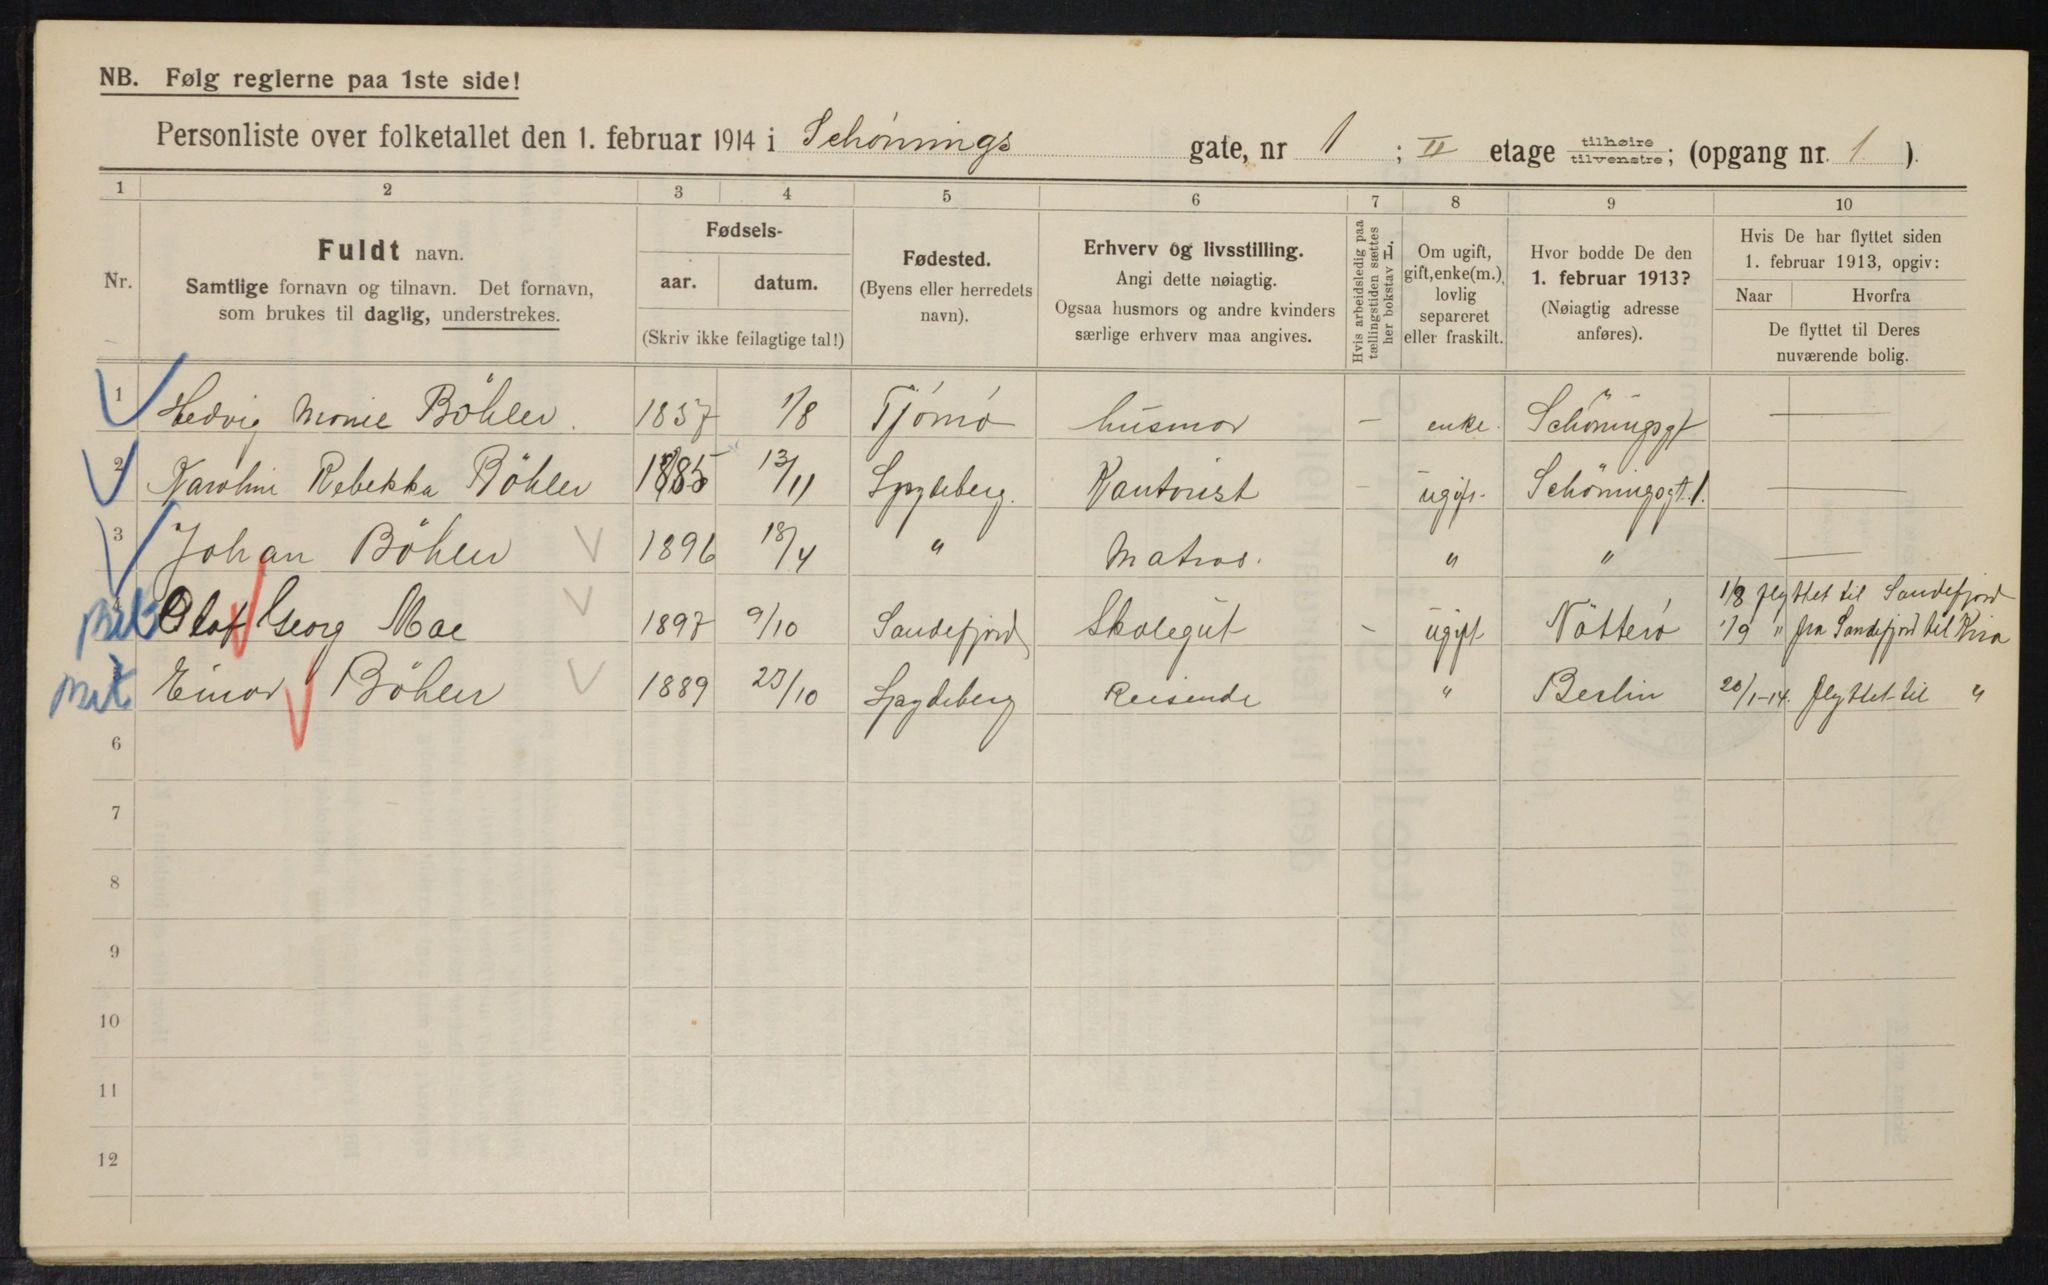 NB. Følg reglerne paa 1ste side!
Personliste over folketallet den 1. februar 1914 i Schønings gate, nr 1 ; II etage tilhøire tilvenstre; (opgang nr. 1 ).
1 2 3 4 5 6 7 8 9 10
Nr.
Fuldt navn.
Samtlige fornavn og tilnavn. Det fornavn,
som brukes til daglig, understrekes.
Fødsels-
aar. datum.
(Skriv ikke feilagtige tal!)
Fødested.
(Byens eller herredets
navn).
Erhverv og livsstilling.
Angi dette nøiagtig.
Ogsaa husmors og andre kvinders
særlige erhverv maa angives.
Hvis arbeidsledig paa
tællingstiden sættes
her bokstav L.
Om ugift,
gift, enke(m.),
lovlig
separeret
eller fraskilt.
Hvor bodde De den
1. februar 1913?
(Nøiagtig adresse
anføres).
Hvis De har flyttet siden
1. februar 1913, opgiv:
Naar Hvorfra
De flyttet til Deres
nuværende bolig.
1 Hedvig Monie Böhler. 1857 1/8 Tjömö husmor — enke. Schöningsgt —
2 Karoline Rebekka Böhler 1885 13/11 Spydeberg. Kantorist — ugift. Schöningsgt. 1. —
3 Johan Böhler 1896 18/4 " Matros. " " —
4 Olaf Georg Moe 1897 9/10 Sandefjord Skolegut — ugift Nötterö 1/8 flyttet til Sandefjord
1/9 " fra Sandefjord til Kria
5 Einar Böhler 1889 23/10 Spydeberg Reisende " Berlin 20/1-14. flyttet til "
6
7
8
9
10
11
12